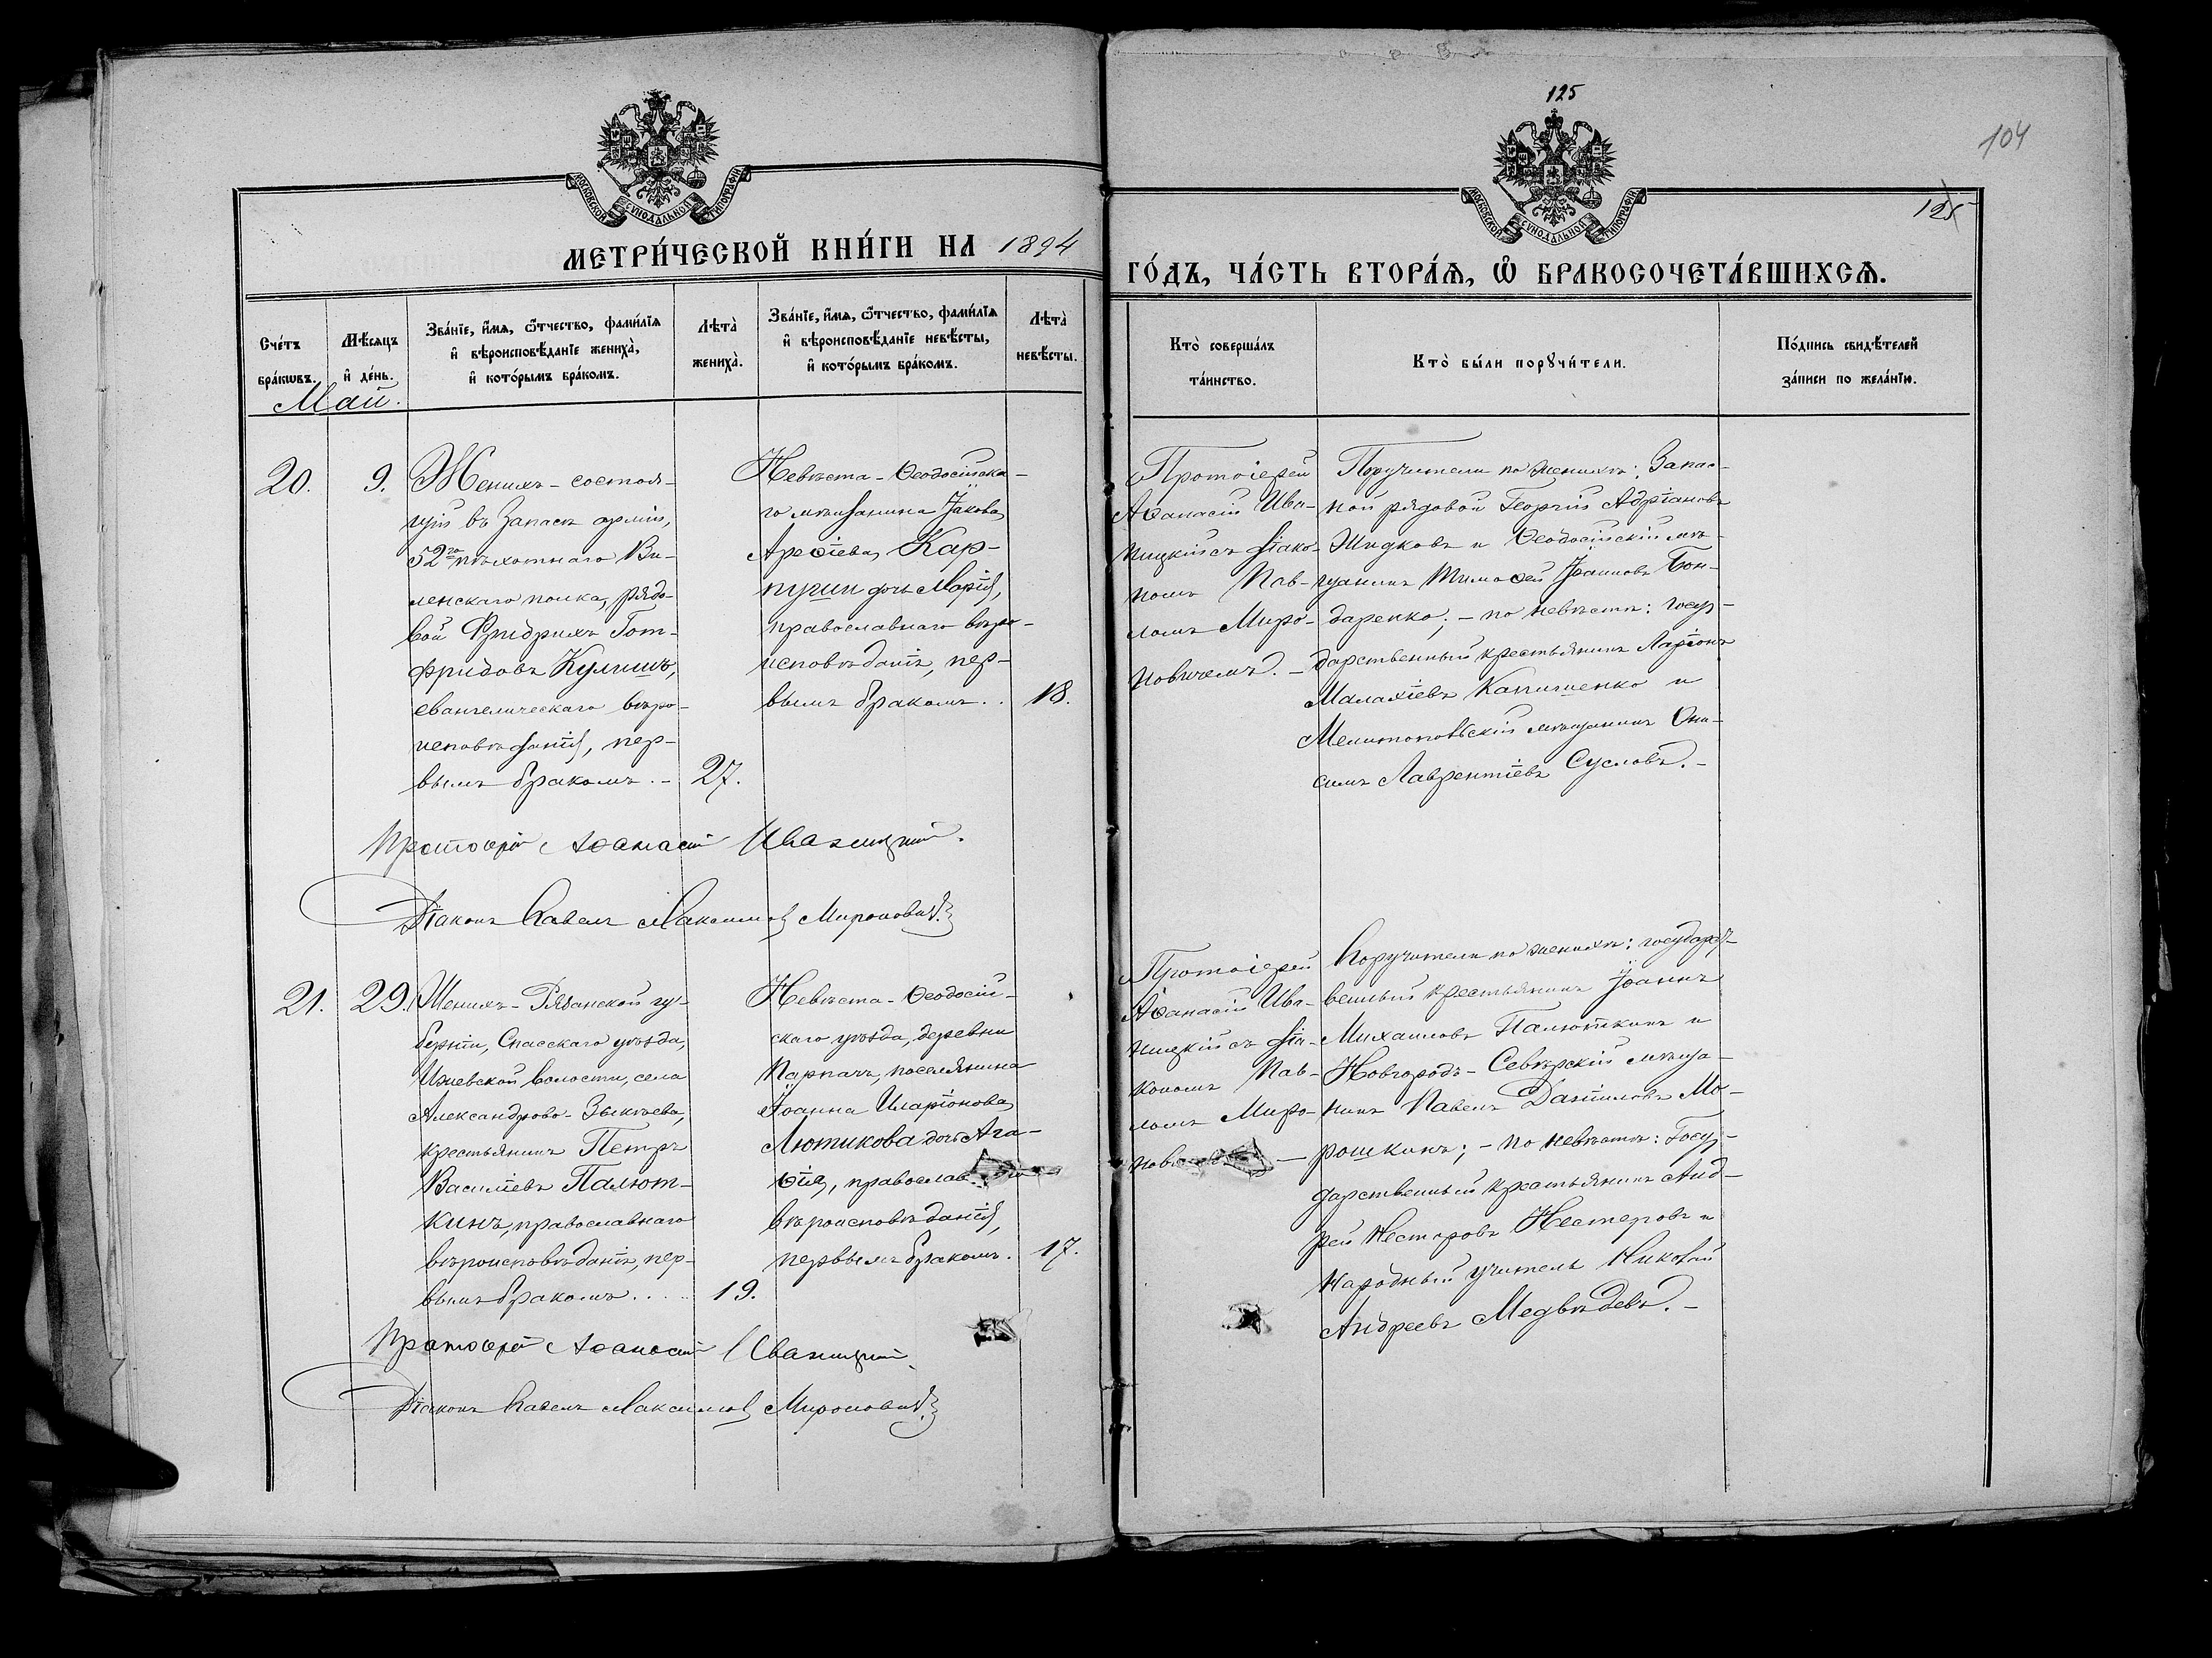 125
104
125
МОСКОВСКОЙ СѴНОДАЛЬНОЙ ТИПОГРАФІИ
МОСКОВСКОЙ СѴНОДАЛЬНОЙ ТИПОГРАФІИ
МЕТРИ́ЧЕСКОЙ КНИ́ГИ НА 1894
ГО́ДЪ, ЧА́СТЬ ВТОРА́Ѧ, Ѽ БРАКОСОЧЕТА́ВШИХСѦ.
Сче́тъ
бра́кѡвъ.
Мѣ́сяцъ
и҆ де́нь.
Зва́нїе, и҆́мѧ, ѻ҆́тчество, фами́лїѧ
и҆ вѣроисповѣ́данїе жениха̀,
и҆ кото́рымъ бра́комъ.
Лѣта̀
жениха̀.
Зва́нїе, и҆́мѧ, ѻ҆́тчество, фами́лїѧ
и҆ вѣроисповѣ́данїе невѣ́сты,
и҆ кото́рымъ бра́комъ.
Лѣта̀
невѣ́сты.
Кто̀ соверша́лъ
та́инство.
Кто̀ бы́ли порꙋчи́тели.
По́дпись свидѣ́телей
за́писи по жела́нїю.
Май.
20.
9.
Женихъ - состоя-
щій въ запасѣ арміи,
52го пѣхотнаго Ви-
ленскаго полка, рядо-
вой Фридрихъ Гот-
фридовъ Кулишъ,
евангелическаго вѣро-
исповѣданія, пер-
вымъ бракомъ. -
27.
Невѣста - Ѳеодосійска-
го мѣщанина Іакова
Ареѳіева, Кар-
пуши дочь Марія,
православнаго вѣро-
исповѣданія, пер-
вымъ бракомъ. .
18.
Протоіерей
Аѳанасій Ива-
ницкій съ діако-
номъ Пав-
ломъ Миро-
новичемъ. -
Поручители по женихѣ: Запас-
ной рядовой Георгій Адріановъ
Жидковъ и Ѳеодосійскій мѣ-
щанинъ Тимоѳей Іоанновъ Бон-
даренко; - по невѣстѣ: госу-
дарственный крестьянинъ Ларіонъ
Малахіевъ Капишенко и
Мелитопольскій мѣщанинъ Они-
симъ Лаврентіевъ Сусловъ. -
Протоіерей Аѳанасій Иваницкій.
Діаконъ Павелъ Максимов Мироновичъ
21.
29.
Женихъ - Рязанской гу-
берніи, Спасскаго уѣзда,
Ижевской волости, села
Александрово-Зыкѣева,
крестьянинъ Петръ
Василіевъ Палют-
кинъ, православнаго
вѣроисповѣданія, пер-
вымъ бракомъ. . . .
19.
Невѣста - Ѳеодосій-
скаго уѣзда, деревни
Парпачъ, поселянина
Іоанна Иларіонова
Лютикова дочь Ага-
ѳія, православ
вѣроисповѣданія,
первымъ бракомъ.
17.
Протоіерей
Аѳанасій Ива-
ницкій съ діа-
кономъ Пав-
ломъ Миро-
нов
Поручители по женихѣ: государст-
венный крестьянинъ Іоаннъ
Михаиловъ Палюткинъ и
Новгородъ-Сѣверскій мѣща-
нинъ Павелъ Даніиловъ Мо-
рошкинъ; - по невѣстѣ: Госу-
дарственный крестьянинъ Анд-
рей Несторовъ Нестеровъ и
Народный учитель Николай
Андреевъ Медвѣдевъ. -
Протоіерей Аѳанасій Иваницкій.
Діаконъ Павелъ Максимов Мироновичъ